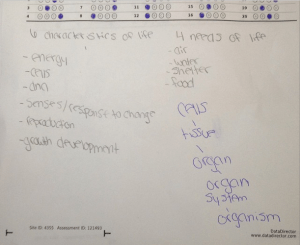 6 characteristics of life
- energy
- cells
- dna
- senses/response to change
- reproduction
- growth development
4 needs of life
- air
- water
- shelter
- food
cells
tissue
organ
organ
system
organism
DataDirector
www.datadirector.com